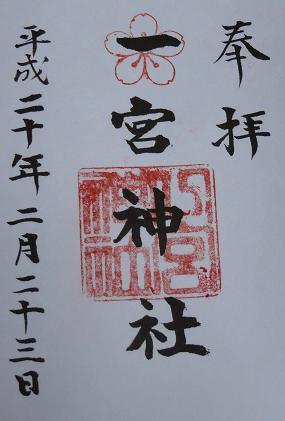 奉拝
一宮神社
平成二十年二月二十三日